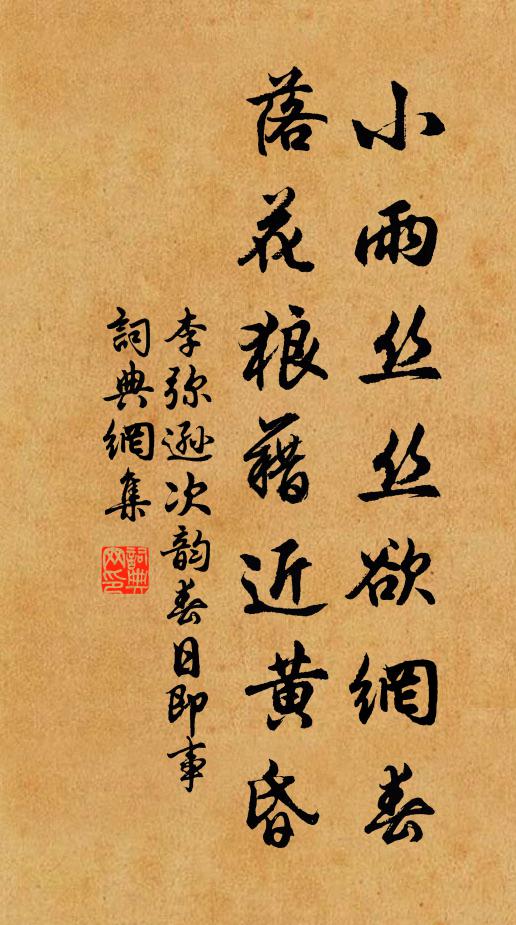 小雨丝丝欲網春
落花狼藉近黄昏
李弥逊次韵春日即事
詞典網集
詞典網印